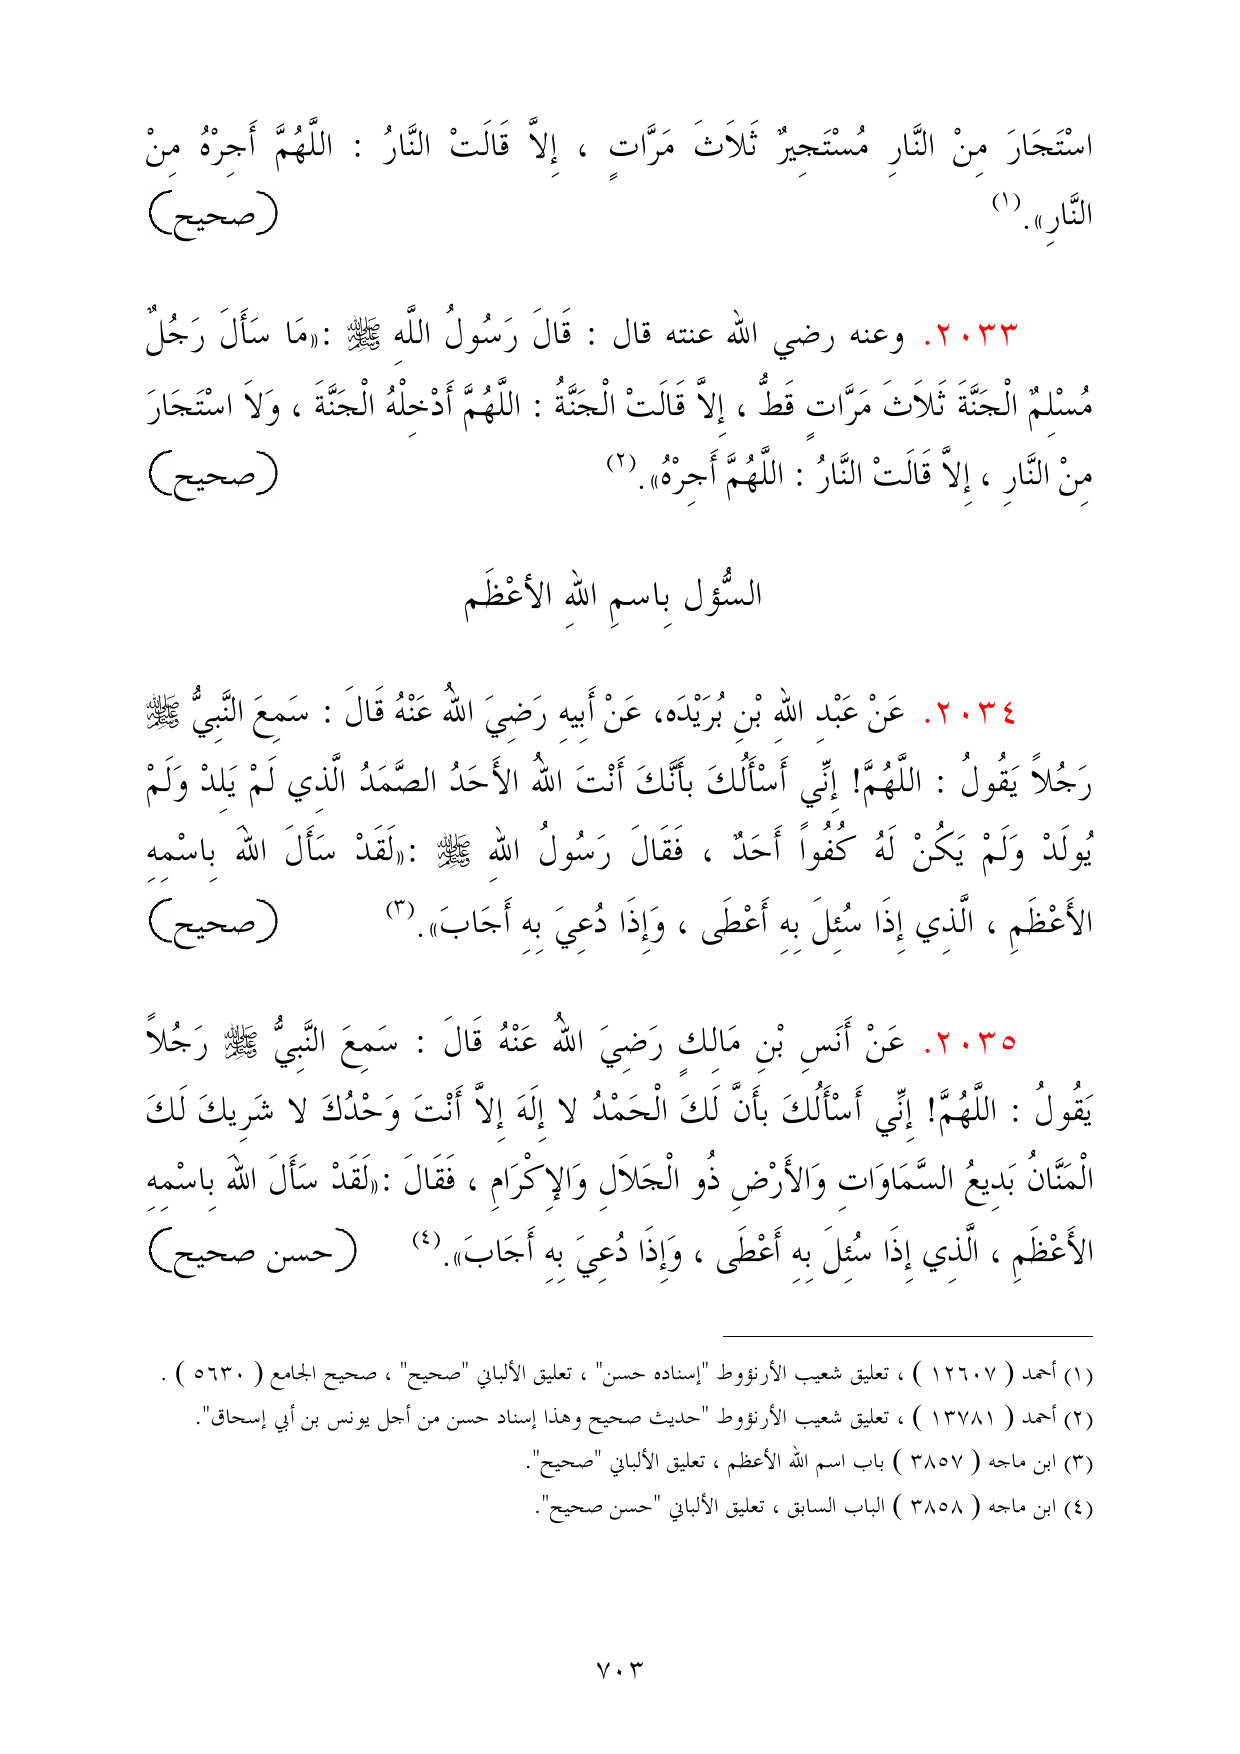 اسْتَجَارَ مِنْ النَّارِ مُسْتَجِيرٌ ثَلاَثَ مَرَّاتٍ ، إِلاَّ قَالَتْ النَّارُ : اللَّهُمَّ أَجِرْهُ مِنْ
النَّارِ». (١) (صحيح)
٢٠٣٣. وعنه رضي الله عنته قال : قَالَ رَسُولُ اللَّهِ ﷺ :«مَا سَأَلَ رَجُلٌ
مُسْلِمٌ الْجَنَّةَ ثَلاَثَ مَرَّاتٍ قَطُّ ، إِلاَّ قَالَتْ الْجَنَّةُ : اللَّهُمَّ أَدْخِلْهُ الْجَنَّةَ ، وَلاَ اسْتَجَارَ
مِنْ النَّارِ ، إِلاَّ قَالَتْ النَّارُ : اللَّهُمَّ أَجِرْهُ». (٢) (صحيح)
السُّؤل بِاسمِ اللهِ الأعْظَم
٢٠٣٤. عَنْ عَبْدِ اللهِ بْنِ بُرَيْدَه، عَنْ أَبِيهِ رَضِيَ اللهُ عَنْهُ قَالَ : سَمِعَ النَّبِيُّ ﷺ
رَجُلاً يَقُولُ : اللَّهُمَّ! إِنِّي أَسْأَلُكَ بأَنَّكَ أَنْتَ اللهُ الأَحَدُ الصَّمَدُ الَّذِي لَمْ يَلِدْ وَلَمْ
يُولَدْ وَلَمْ يَكُنْ لَهُ كُفُواً أَحَدٌ ، فَقَالَ رَسُولُ اللهِ ﷺ :«لَقَدْ سَأَلَ اللهَ بِاسْمِهِ
الأَعْظَمِ ، الَّذِي إِذَا سُئِلَ بِهِ أَعْطَى ، وَإِذَا دُعِيَ بِهِ أَجَابَ». (٣) (صحيح)
٢٠٣٥. عَنْ أَنَسِ بْنِ مَالِكٍ رَضِيَ اللهُ عَنْهُ قَالَ : سَمِعَ النَّبِيُّ ﷺ رَجُلاً
يَقُولُ : اللَّهُمَّ! إِنِّي أَسْأَلُكَ بأَنَّ لَكَ الْحَمْدُ لا إِلَهَ إِلاَّ أَنْتَ وَحْدُكَ لا شَرِيكَ لَكَ
الْمَنَّانُ بَدِيعُ السَّمَاوَاتِ وَالأَرْضِ ذُو الْجَلاَلِ وَالإِكْرَامِ ، فَقَالَ :«لَقَدْ سَأَلَ اللهَ بِاسْمِهِ
الأَعْظَمِ ، الَّذِي إِذَا سُئِلَ بِهِ أَعْطَى ، وَإِذَا دُعِيَ بِهِ أَجَابَ». (٤) (حسن صحيح)
(١) أحمد ( ١٢٦٠٧ ) ، تعليق شعيب الأرنؤوط "إسناده حسن" ، تعليق الألباني "صحيح" ، صحيح الجامع ( ٥٦٣٠ ) .
(٢) أحمد ( ١٣٧٨١ ) ، تعليق شعيب الأرنؤوط "حديث صحيح وهذا إسناد حسن من أجل يونس بن أبي إسحاق".
(٣) ابن ماجه ( ٣٨٥٧ ) باب اسم الله الأعظم ، تعليق الألباني "صحيح".
(٤) ابن ماجه ( ٣٨٥٨ ) الباب السابق ، تعليق الألباني "حسن صحيح".
٧٠٣